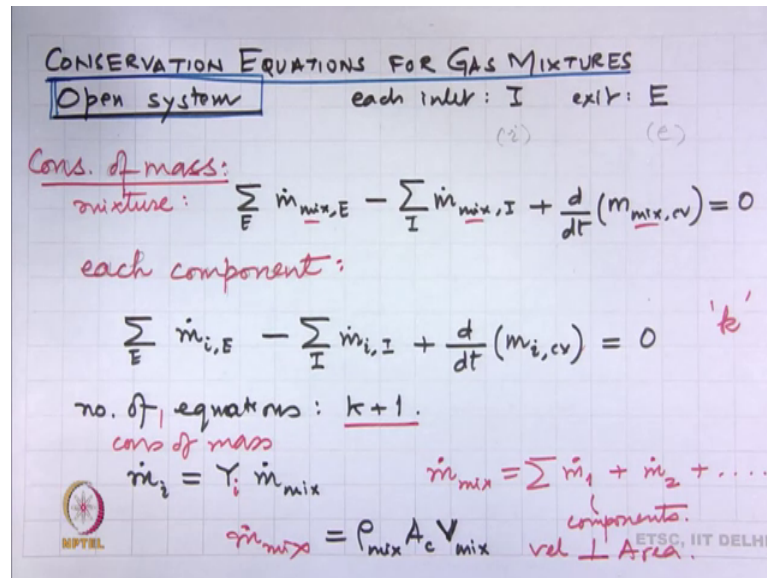 CONSERVATION EQUATIONS FOR GAS MIXTURES
Open system each inlet : I exit : E
(i) (e)
Cons. of mass:
mixture : Σ_E ṁ_mix,E − Σ_I ṁ_mix,I + d/dt (m_mix,cv) = 0
each component :
Σ_E ṁ_i,E − Σ_I ṁ_i,I + d/dt (m_i,cv) = 0 'k'
no. of equations : k+1.
cons of mass
ṁ_i = Y_i ṁ_mix ṁ_mix = Σ ṁ_1 + ṁ_2 + ....
components.
ṁ_mix = ρ_mix A_c V_mix vel ⊥ Area.
NPTEL
ETSC, IIT DELHI